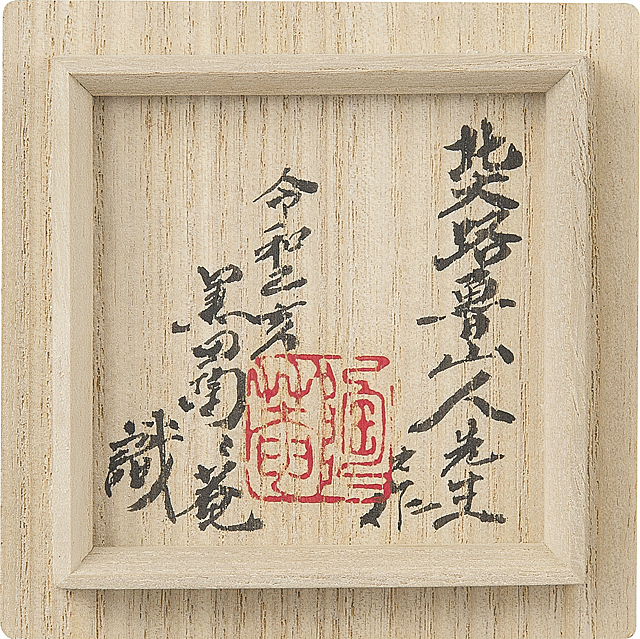 北大路魯山人先生
作
令和二亥
黒田陶々菴
識